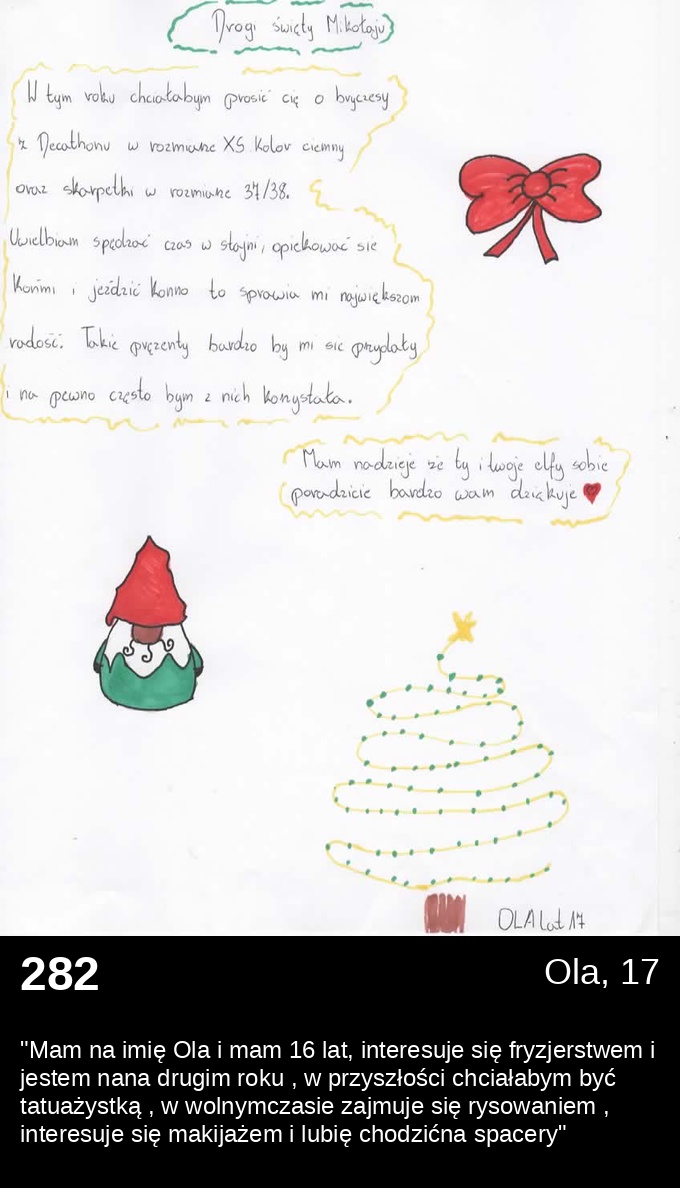 Drogi święty Mikołaju
W tym roku chciałabym prosić cię o bryczesy
z Decathonu w rozmiarze XS Kolor ciemny
oraz skarpetki w rozmiarze 37/38.
Uwielbiam spędzać czas w stajni, opiekować sie
Końmi i jeździć konno to sprawia mi największom
radość. Takie pręzenty bardzo by mi sie przydały
i na pewno często bym z nich korzystała.
Mam nadzieje że ty i twoje elfy sobie
poradzicie bardzo wam dziękuje
OLA lat 17
282
Ola, 17
"Mam na imię Ola i mam 16 lat, interesuje się fryzjerstwem i
jestem nana drugim roku , w przyszłości chciałabym być
tatuażystką , w wolnymczasie zajmuje się rysowaniem ,
interesuje się makijażem i lubię chodzićna spacery"